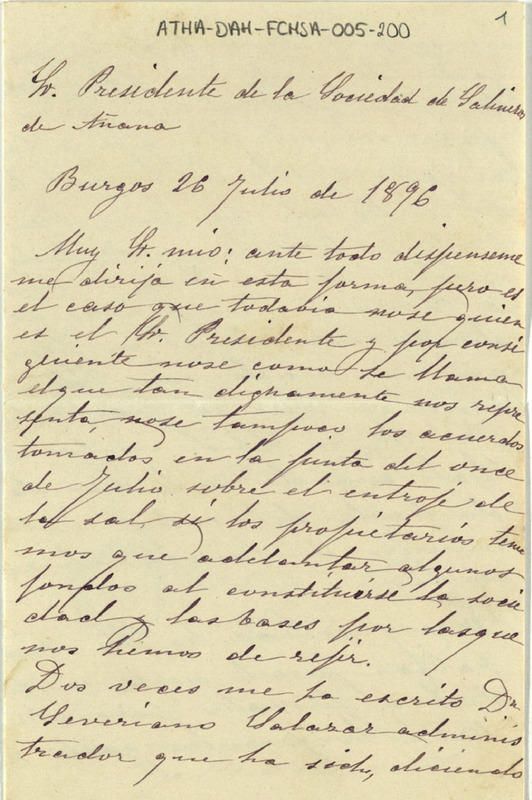 ATHA-DAH-FCMSA-005-200
1
Sr. Presidente de la Sociedad de Salineros
de Añana
Burgos 26 Julio de 1896
Muy Sr. mio: ante todo dispenseme
me dirija en esta forma, pero es
el caso que todavia nose quien
es el Sr. Presidente y por consi
guiente nose como se llama
elque tan dignamente nos repre
senta, nose tampoco los acuerdos
tomados en la junta del once
de Julio sobre el entroje de
la sal, si los propietarios tene
mos que adelantar algunos
fondos al constituirse la socie
dad y las bases por lasque
nos hemos de rejir.
Dos veces me ha escrito Dn
Severiano Salazar adminis
trador que ha sido, diciendo